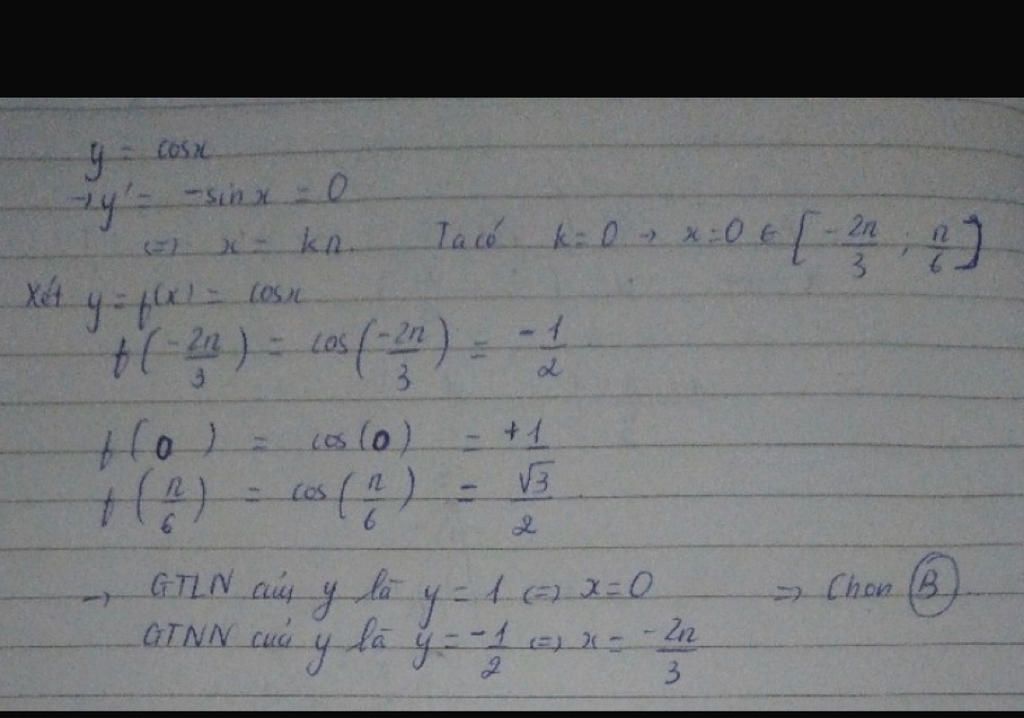 y = cosx
→ y' = -sin x = 0
<=> x = kπ. Ta có k = 0 → x = 0 ∈ [-2π/3 ; π/6]
Xét y = f(x) = cosx
f(-2π/3) = cos(-2π/3) = -1/2
f(0) = cos(0) = +1
f(π/6) = cos(π/6) = √3/2
→ GTLN của y là y = 1 <=> x = 0 => Chọn B
GTNN của y là y = -1/2 <=> x = -2π/3